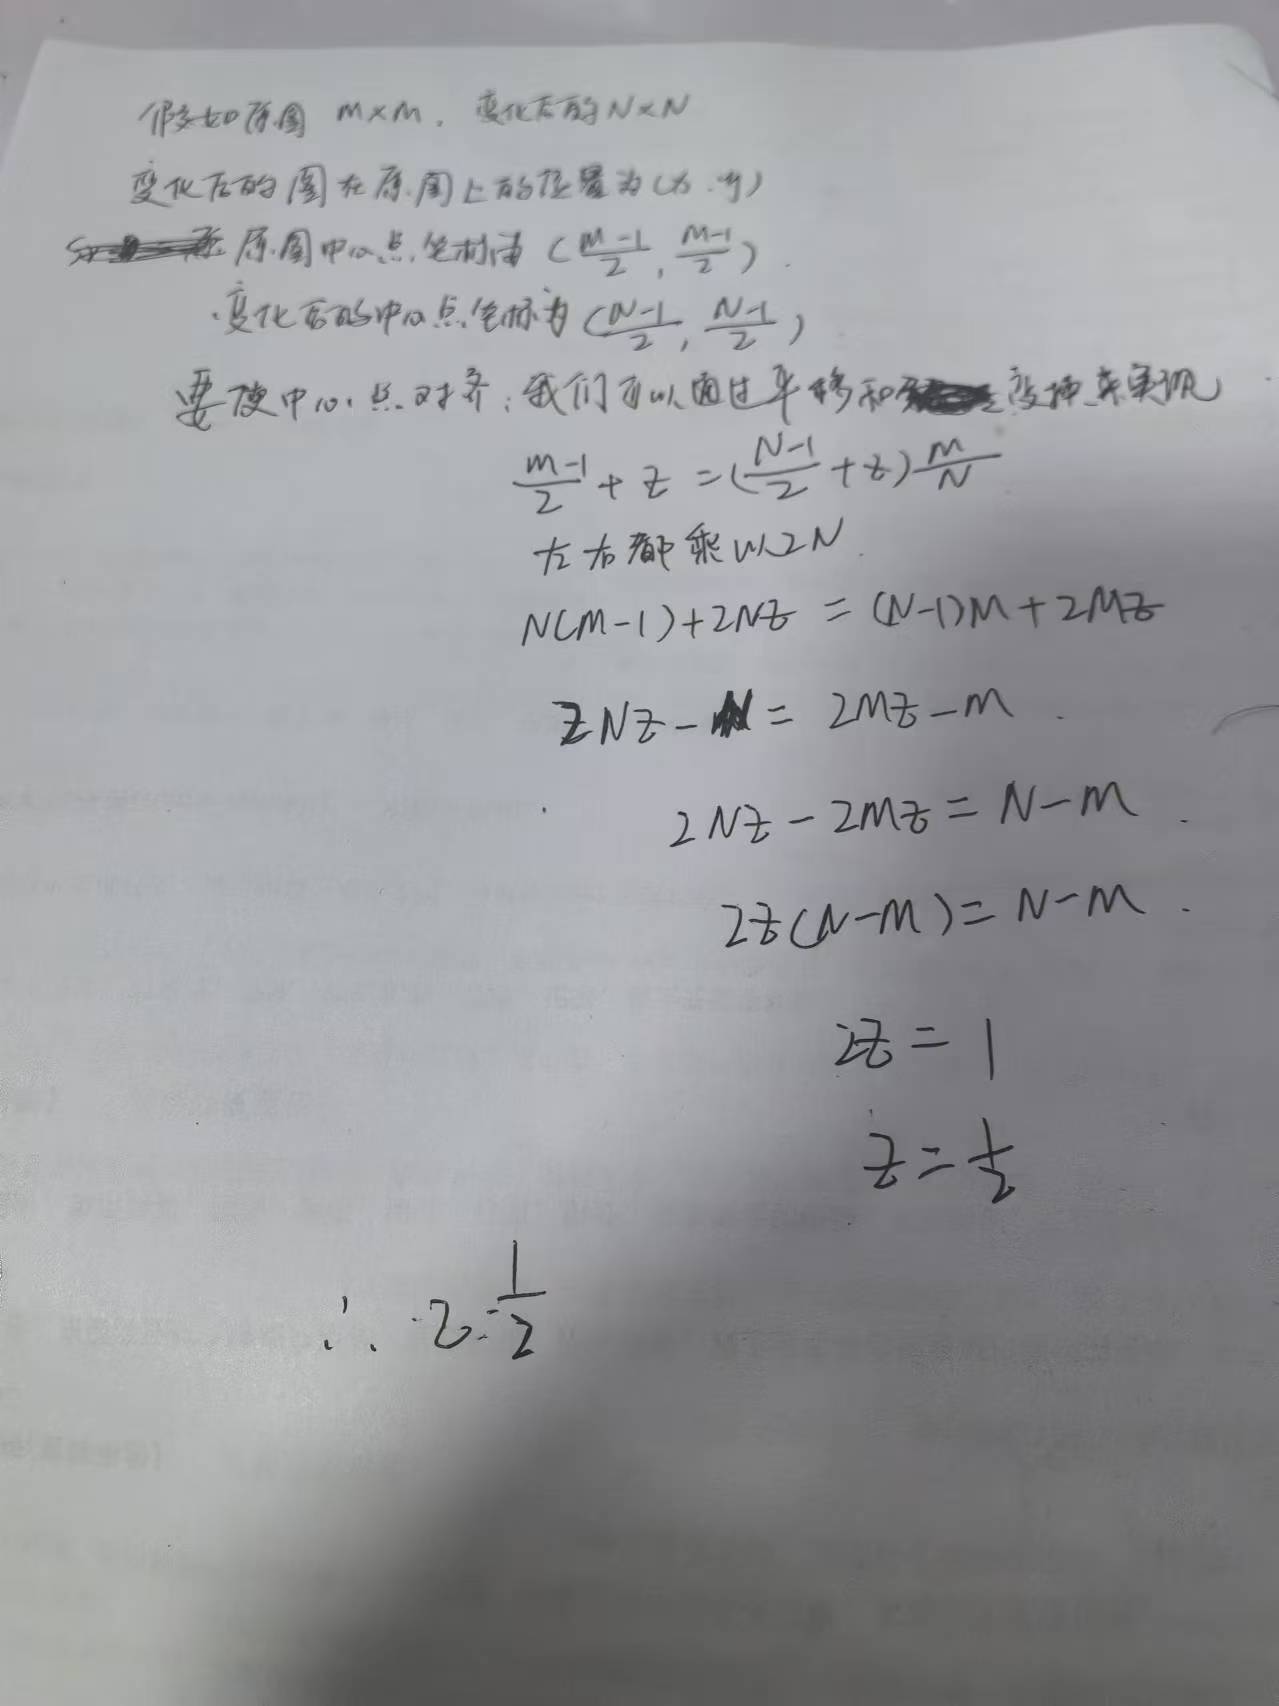 假如原图 M×M. 变化后的N×N
变化后的图在原图上的位置为(x.y)
原图中心点坐标为 (M-1/2, M-1/2).
变化后的中心点坐标为 (N-1/2, N-1/2)
要使中心点对齐,我们可以通过平移和变换来实现
M-1/2 + Z = (N-1/2 + Z) M/N
左右都乘以2N.
N(M-1)+2NZ = (N-1)M+2MZ
2NZ-N = 2MZ-M.
2NZ-2MZ=N-M.
2Z(N-M)=N-M.
2Z = 1
Z = 1/2
∴ Z = 1/2